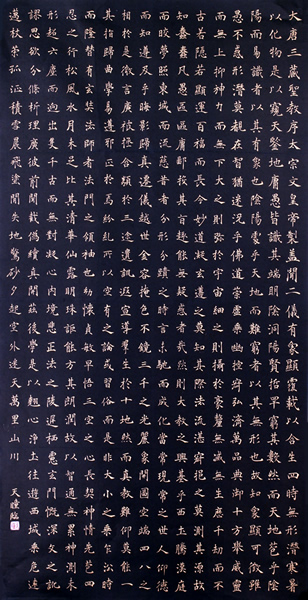 大唐三藏聖教序太宗文皇帝製蓋聞二儀有象顯覆載以含生四時無形潛寒暑
以化物是以窺天鑒地庸愚皆識其端明陰洞陽賢哲罕窮其數然而天地苞乎陰
陽而易識者以其有象也陰陽處乎天地而難窮者以其無形也故知象顯可徵雖
愚不惑形潛莫覩在智猶迷況乎佛道崇虛乘幽控寂弘濟萬品典御十方舉威靈
而無上抑神力而無下大之則彌於宇宙細之則攝於毫釐無滅無生歷千劫而不
古若隱若顯運百福而長今妙道凝玄遵之莫知其際法流湛寂挹之莫測其源故
知蠢蠢凡愚區區庸鄙投其旨趣能無疑惑者哉然則大教之興基乎西土騰漢庭
而皎夢照東域而流慈昔者分形分跡之時言未馳而成化當常現常之世人仰德
而知遵及乎晦影歸真遷儀越世金容掩色不鏡三千之光麗象開圖空端四八之
相於是微言廣被拯含類於三途遺訓遐宣導群生於十地然而真教難仰莫能一
其旨歸曲學易遵邪正於焉紛糺所以空有之論或習俗而是非大小之乘乍沿時
而隆替有玄奘法師者法門之領袖也幼懷貞敏早悟三空之心長契神情先苞四
忍之行松風水月未足比其清華仙露明珠詎能方其朗潤故以智通無累神測未
形超六塵而迥出隻千古而無對凝心內境悲正法之陵遲栖慮玄門慨深文之訛
謬思欲分條析理廣彼前聞截偽續真開茲後學是以翹心淨土往遊西域乘危遠
邁杖策孤征積雪晨飛塗閒失地驚砂夕起空外迷天萬里山川